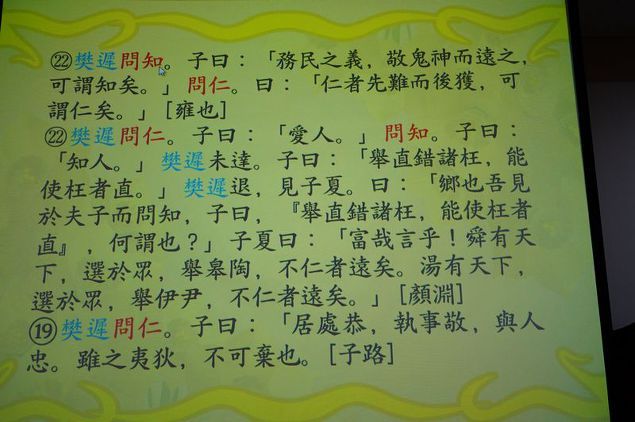 ㉒樊遲問知。子曰：「務民之義，敬鬼神而遠之，
可謂知矣。」問仁。曰：「仁者先難而後獲，可
謂仁矣。」[雍也]
㉒樊遲問仁。子曰：「愛人。」問知。子曰：
「知人。」樊遲未達。子曰：「舉直錯諸枉，能
使枉者直。」樊遲退，見子夏。曰：「鄉也吾見
於夫子而問知，子曰，『舉直錯諸枉，能使枉者
直』，何謂也？」子夏曰：「富哉言乎！舜有天
下，選於眾，舉皋陶，不仁者遠矣。湯有天下，
選於眾，舉伊尹，不仁者遠矣。」[顏淵]
⑲樊遲問仁。子曰：「居處恭，執事敬，與人
忠。雖之夷狄，不可棄也。[子路]